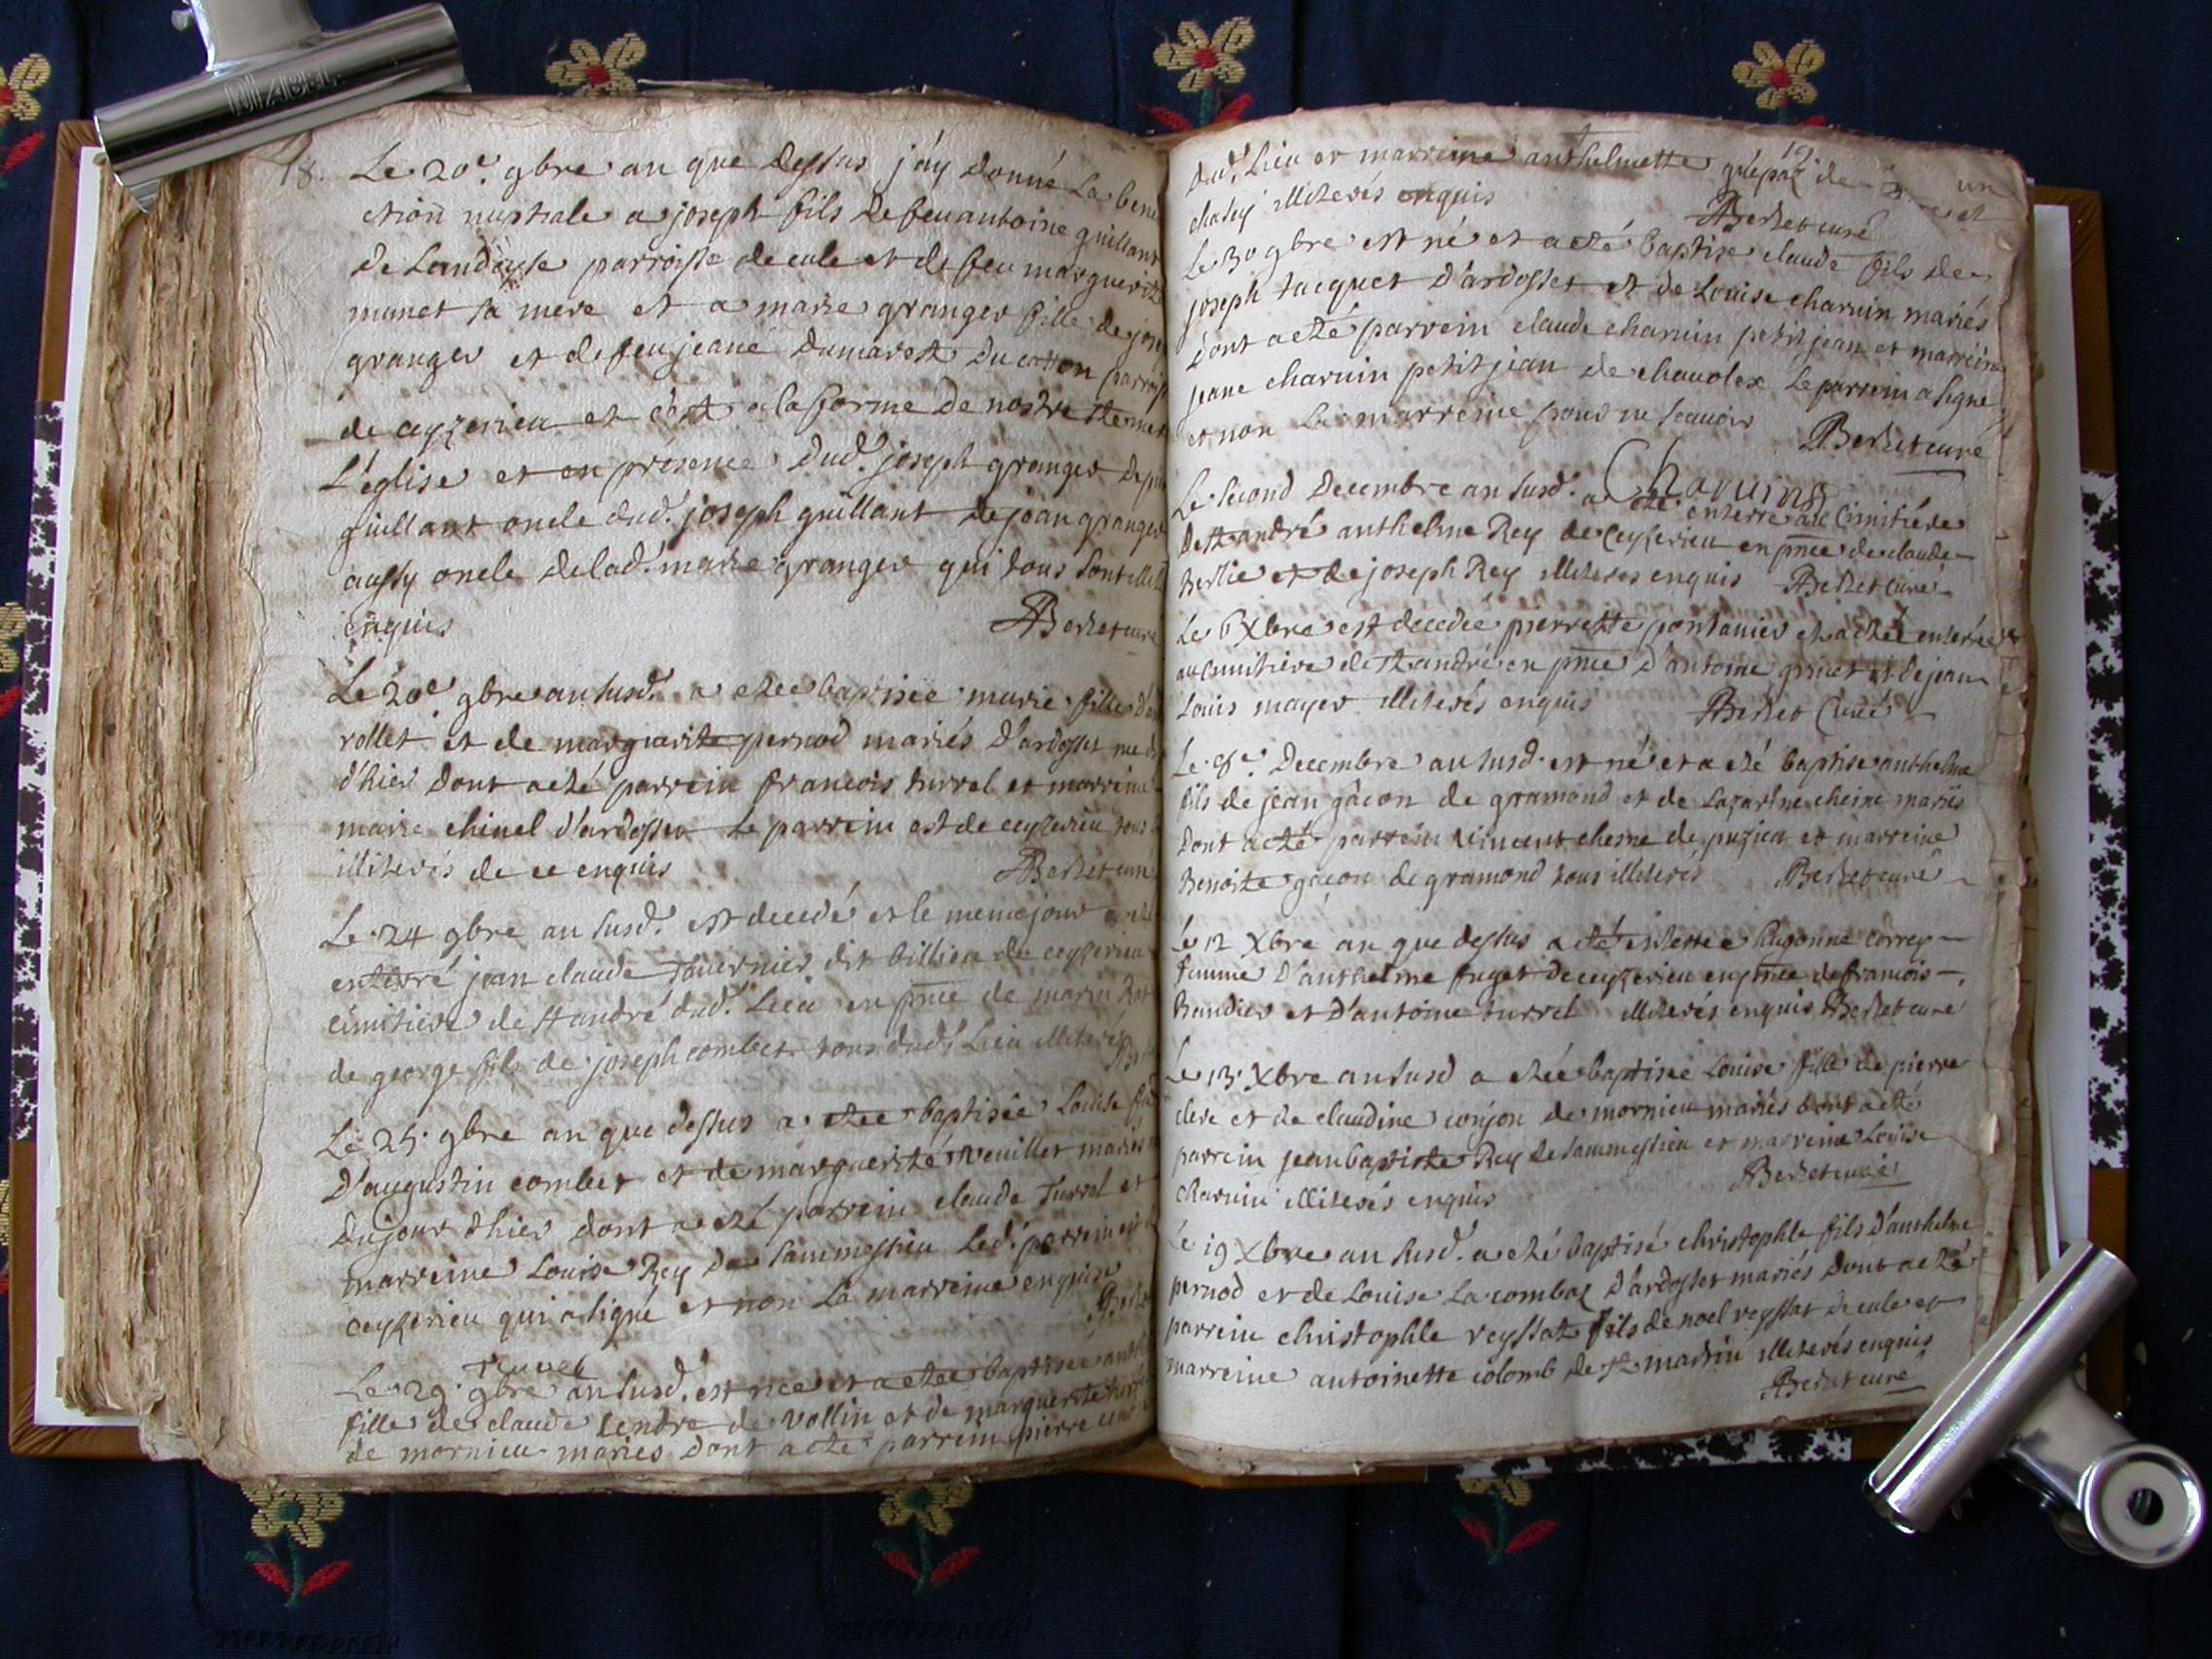 18. Le 20e. gbre an que dessus j'ay donné La bene
ction nuptiale a joseph fils de feu antoine guillant
de Landayse parroisse de cule et de feu marguerite
munet sa mere et a marie granger fille de jose
granger et de feu jeane dumarest du catton parrois
de ceyzerieu et c'est a la forme de nostre ste mere
L'église et en presence dud. joseph granger de
guillant oncle dud. joseph guillant de jean granger
aussy oncle de lad. marie granger qui tous sont illit
enquis
Berzet curé
Le 20e gbre an susd. a etee baptisée marie fille d
rollet et de marguerite pernod mariés d'ardosset née
d'hier dont a eté parrein francois turrel et marreine
marie chinel d'ardosset le parrein est de ceyzerieu tous
illiterés de ce enquis
Berzet curé
Le 24 gbre an susd. est decedé et le meme jour a eté
enterré jean claude Tavernier dit billieu de ceyzerieu
cimitiere de st andré dud. Lieu en pnce de marin
de george fils de joseph combet tous dud. Lieu illiterés
Le 25. gbre an que dessus a etee baptisée Louise fille
D'augustin combet et de marguerite veuillet mariés
Du jour d'hier dont a eté parrein claude Turrel et
marreine Louise Rey de Sammessieu Led. parrein est
ceyzerieu qui a signé et non La marreine enquise
Berzet
Turrel
Le 29. gbre an susd. est née et a etee baptisée anth
fille de claude Cendre de vollin et de marguerite
de mornieu mariés dont a eté parrein pierre
19.
Dud. Lieu et marreine anthelmette de
chasey illiterés enquis
Berzet curé
Le 30 gbre est né et a eté baptisé claude fils de
joseph tacquet D'ardosset et de Louise charvin mariés
dont a eté parrein claude charvin petit jean et marreine
jeane charvin petit jean de chavolex Le parrein a signé
et non La marreine pour ne scavoir
Berzet curé
Charving
Le second Decembre an susd. a eté enterré au Cimitiére
De st andré anthelme Rey de Ceyzerieu en pnce de claude
Berlie et de joseph Rey illiteres enquis Berzet Curé
Le 6 Xbre est decedée pierrette pontanier et a eté enterrée
au cimitiere de st andré en pnce d'antoine grinet et de jean
Louis mayer illiterés enquis Berzet Curé
Le 8e. Decembre an susd. est né et a eté baptisé anthelme
fils de jean gâcon de gramond et de Lazarine cheine mariés
Dont a eté parrein vincent cheine de puzieu et marreine
Benoite gacon de gramond tous illiterés Berzet curé
Le 12 Xbre an que dessus a eté enterree hugonne correy
femme D'anthelme fuget de ceyzerieu en pnce de francois
Baudier et D'antoine turrel illiterés enquis Berzet curé
Le 13. Xbre an susd a etée baptisée Louise fille de pierre
clerc et de claudine conjon de mornieu mariés dont a eté
parrein jean baptiste Rey de Sammessieu et marreine Louise
charvin illiterés enquis
Berzet curé
Le 19 Xbre an susd. a eté baptisé christophle fils d'anthelme
pernod et de Louise La combaz D'ardosset mariés dont a eté
parrein christophle reyssat fils de noel reyssat de cule et
marreine antoinette colomb de st martin illiterés enquis
Berzet curé